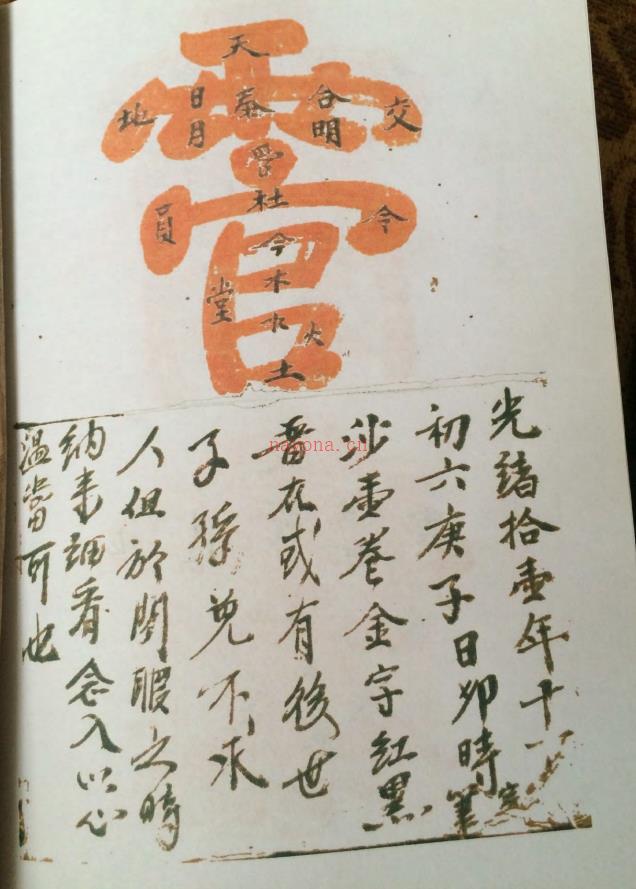 天
交
合明
泰
日月
地
杜
令
今
員
木
水
堂
火
土
光緒拾壹年十一
初六庚子日卯時筆
沙壷卷金字紅黑
在或有後世
子孫免不求
人但於閒暇之時
納來細看念入以心
温當可也
nayona.cn